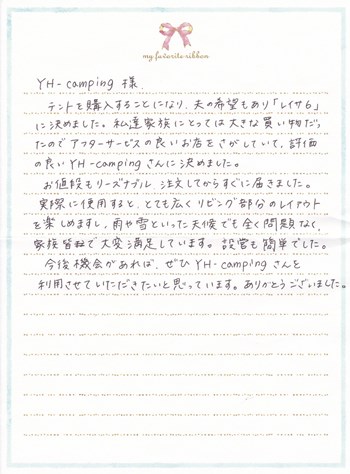 my favorite ribbon
YH-camping 様.
テントを購入することになり、夫の希望もあり「レイサ6」
に決めました。私達家族にとっては大きな買い物だっ
たのでアフターサービスの良いお店をさがしていて、評価
の良いYH-campingさんに決めました。
お値段もリーズナブル、注文してからすぐに届きました。
実際に使用すると、とても広くリビング部分のレイアウト
を楽しめますし、雨や雪といった天候でも全く問題なく、
家族皆転で大変満足しています。設営も簡単でした。
今後機会があれば、ぜひYH-campingさんを
利用させていただきたいと思っています。ありがとうございました。